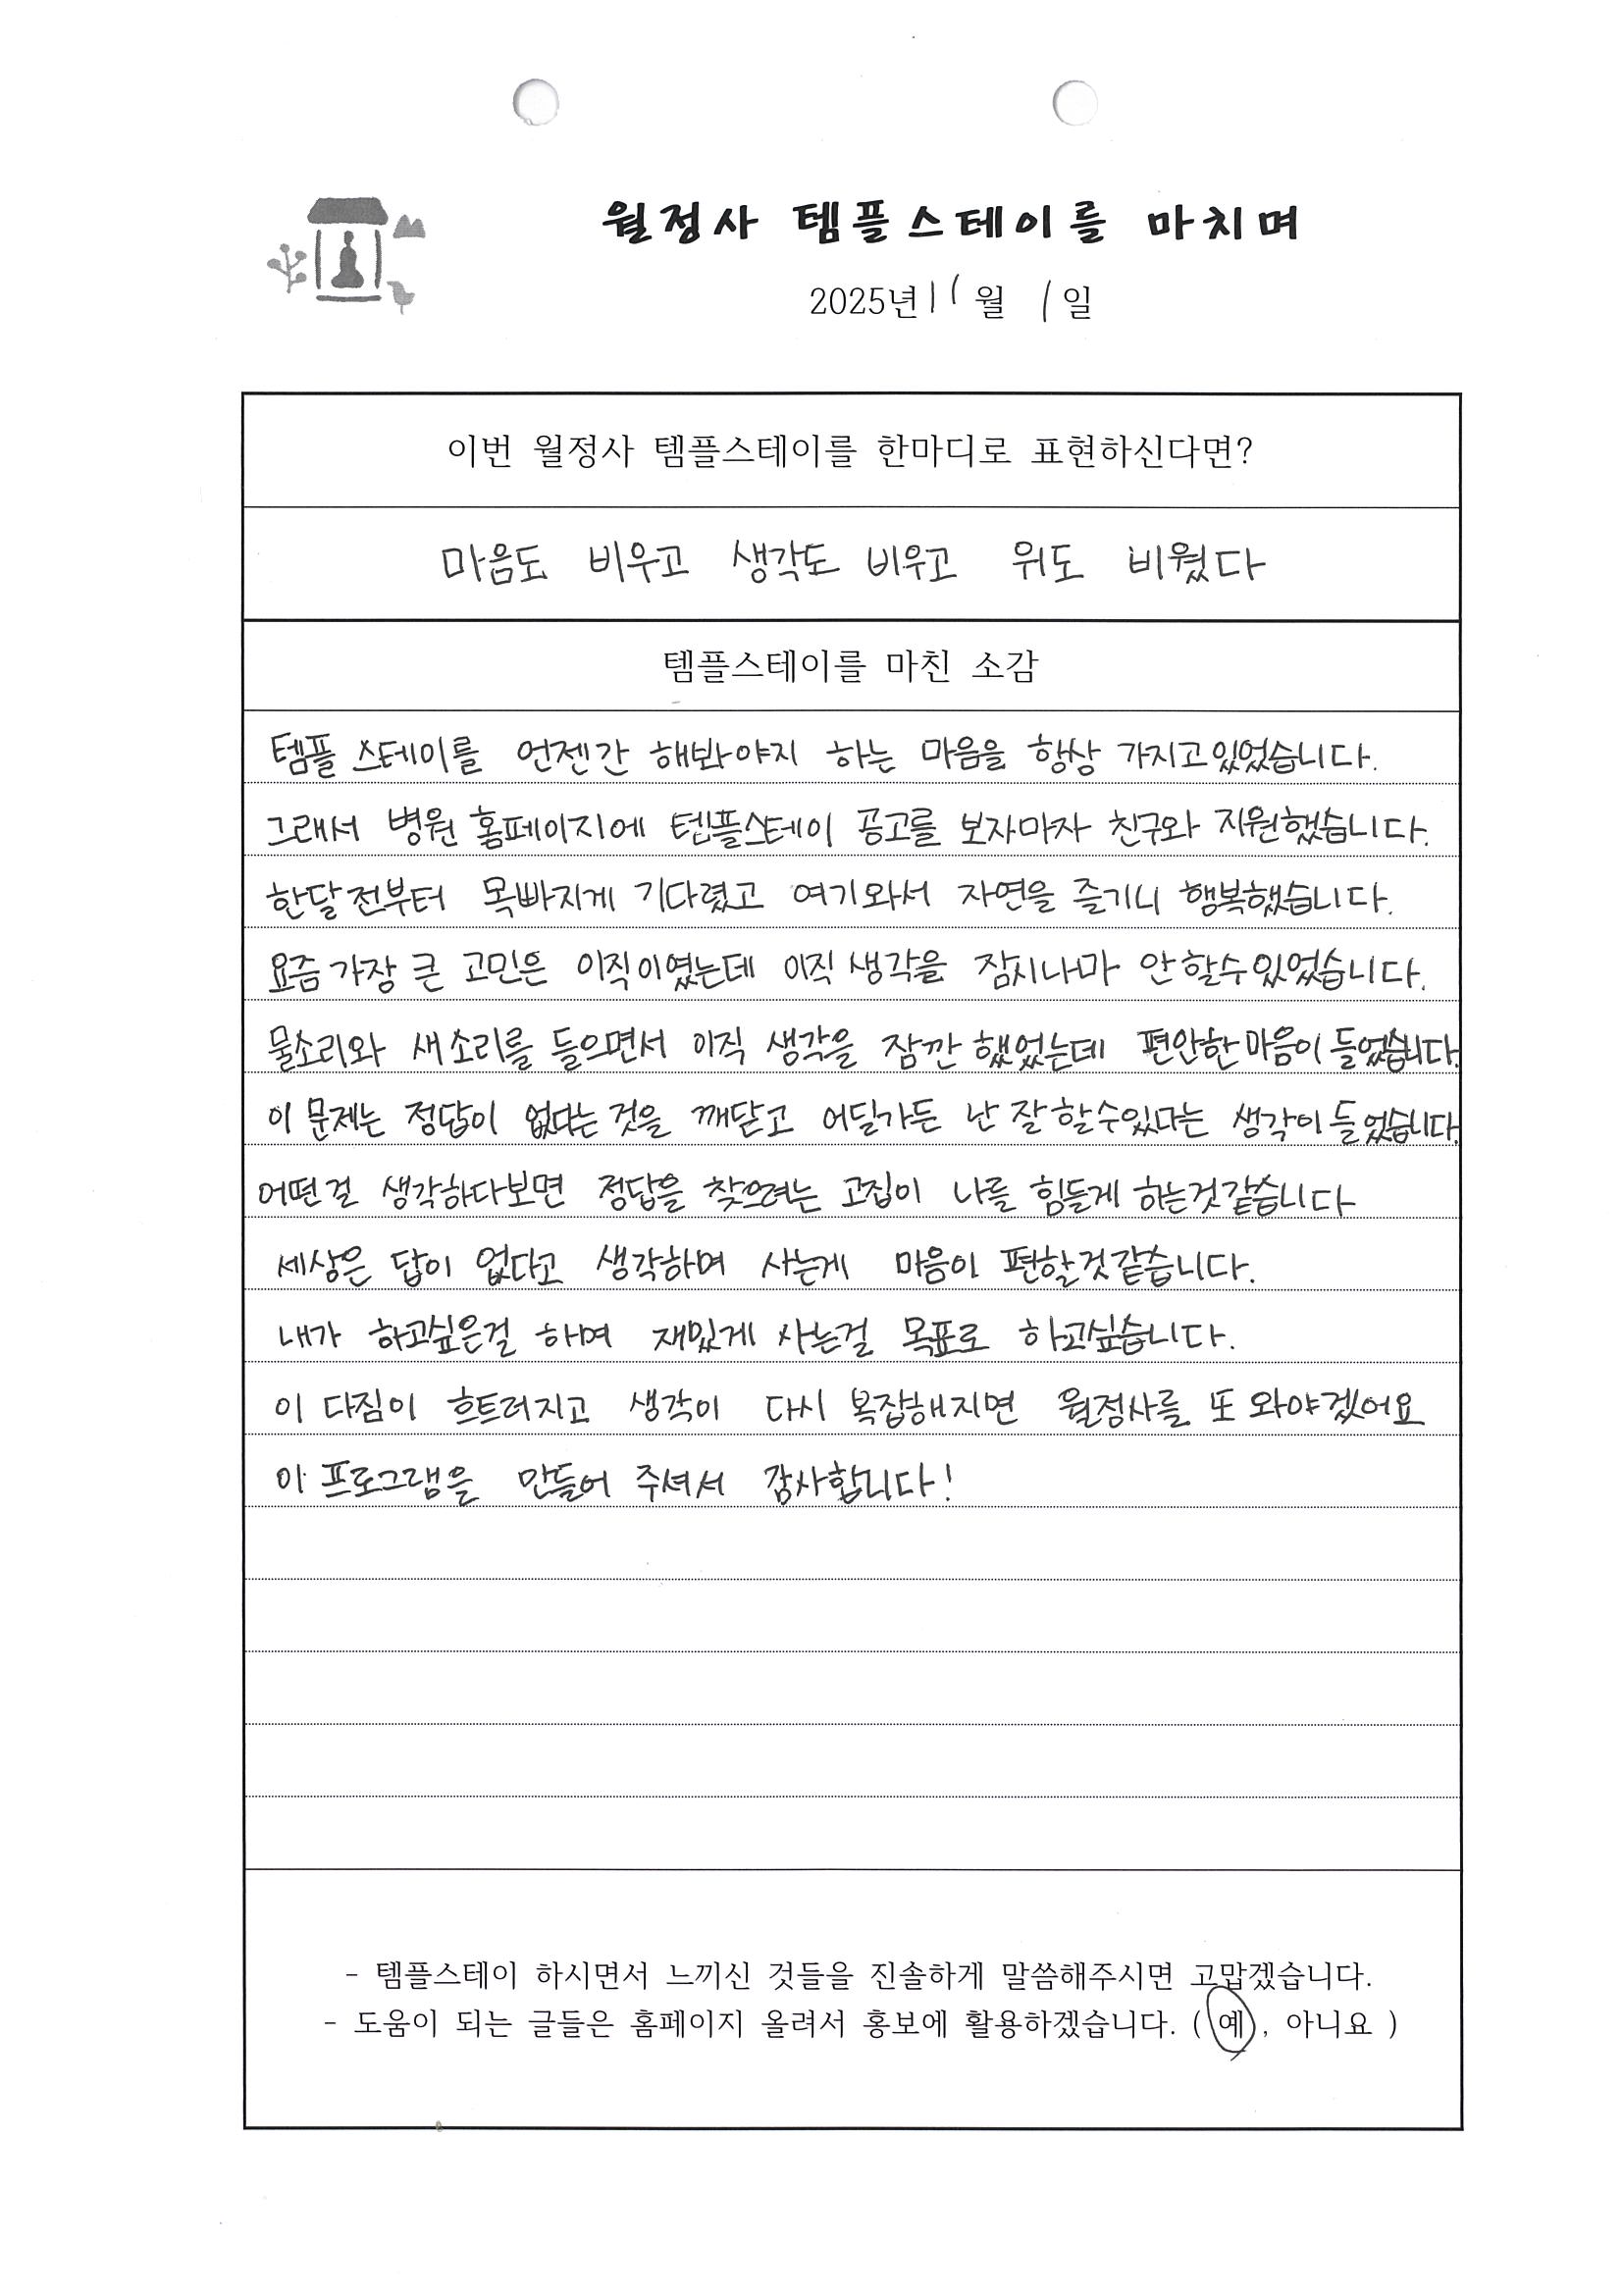 월정사 템플스테이를 마치며
2025년 11월 1일
이번 월정사 템플스테이를 한마디로 표현하신다면?
마음도 비우고 생각도 비우고 위도 비웠다
템플스테이를 마친 소감
템플 스테이를 언젠간 해봐야지 하는 마음을 항상 가지고있었습니다.
그래서 병원 홈페이지에 템플스테이 공고를 보자마자 친구와 지원했습니다.
한달전부터 목빠지게 기다렸고 여기와서 자연을 즐기니 행복했습니다.
요즘 가장 큰 고민은 이직이였는데 이직 생각을 잠시나마 안할수있었습니다.
물소리와 새소리를 들으면서 이직 생각을 잠깐 했었는데 편안한마음이 들었습니다.
이 문제는 정답이 없다는 것을 깨닫고 어딜가든 난 잘할수있다는 생각이 들었습니다.
어떤걸 생각하다보면 정답을 찾으려는 고집이 나를 힘들게 하는것같습니다
세상은 답이 없다고 생각하며 사는게 마음이 편할것같습니다.
내가 하고싶은걸 하며 재밌게 사는걸 목표로 하고싶습니다.
이 다짐이 흐트러지고 생각이 다시 복잡해지면 월정사를 또 와야겠어요
이 프로그램을 만들어 주셔서 감사합니다!
- 템플스테이 하시면서 느끼신 것들을 진솔하게 말씀해주시면 고맙겠습니다.
- 도움이 되는 글들은 홈페이지 올려서 홍보에 활용하겠습니다. ( 예 , 아니요 )